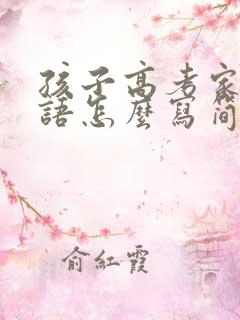 孩子高考家
語怎麼寫简
俞紅霞